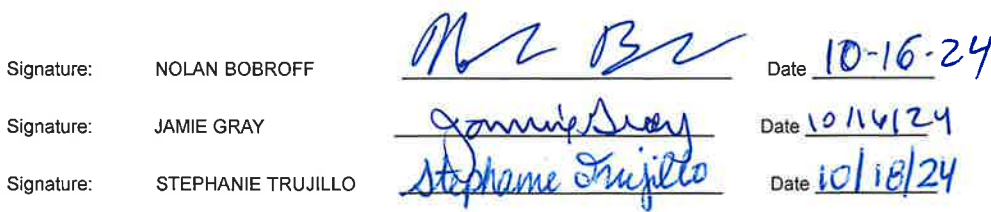 Signature: NOLAN BOBROFF N B Date 10-16-24
Signature: JAMIE GRAY Jammie Gray Date 10/16/24
Signature: STEPHANIE TRUJILLO Stephanie Trujillo Date 10/18/24